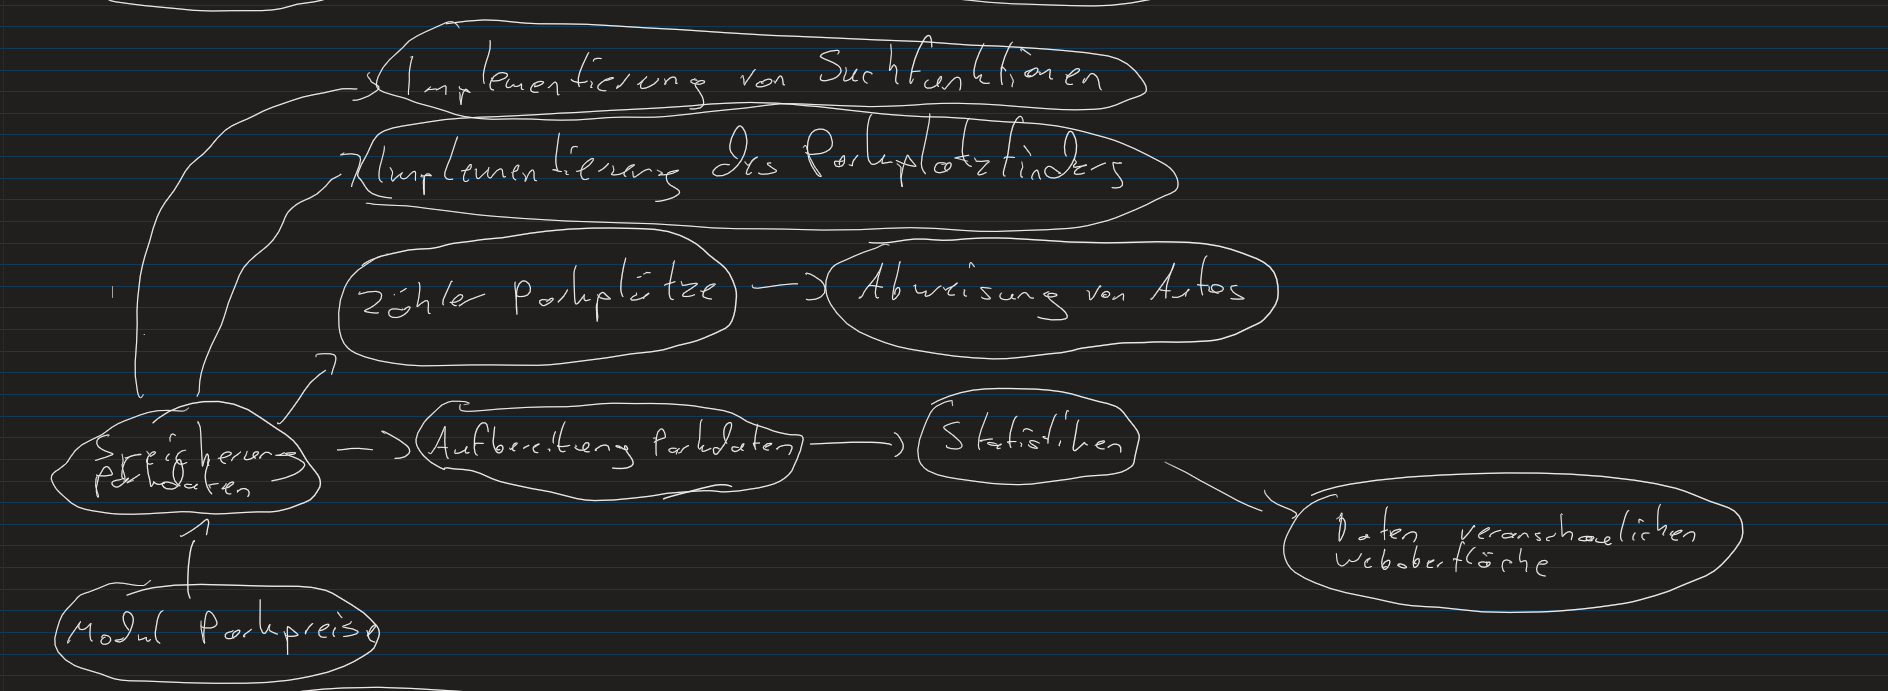 Implementierung von Suchfunktionen
Implementierung des Parkplatzfinders
Zähler Parkplätze
Abweisung von Autos
Speicherung
Parkdaten
Aufbereitung Parkdaten
Statistiken
Daten veranschaulichen
Weboberfläche
Modul Parkpreise